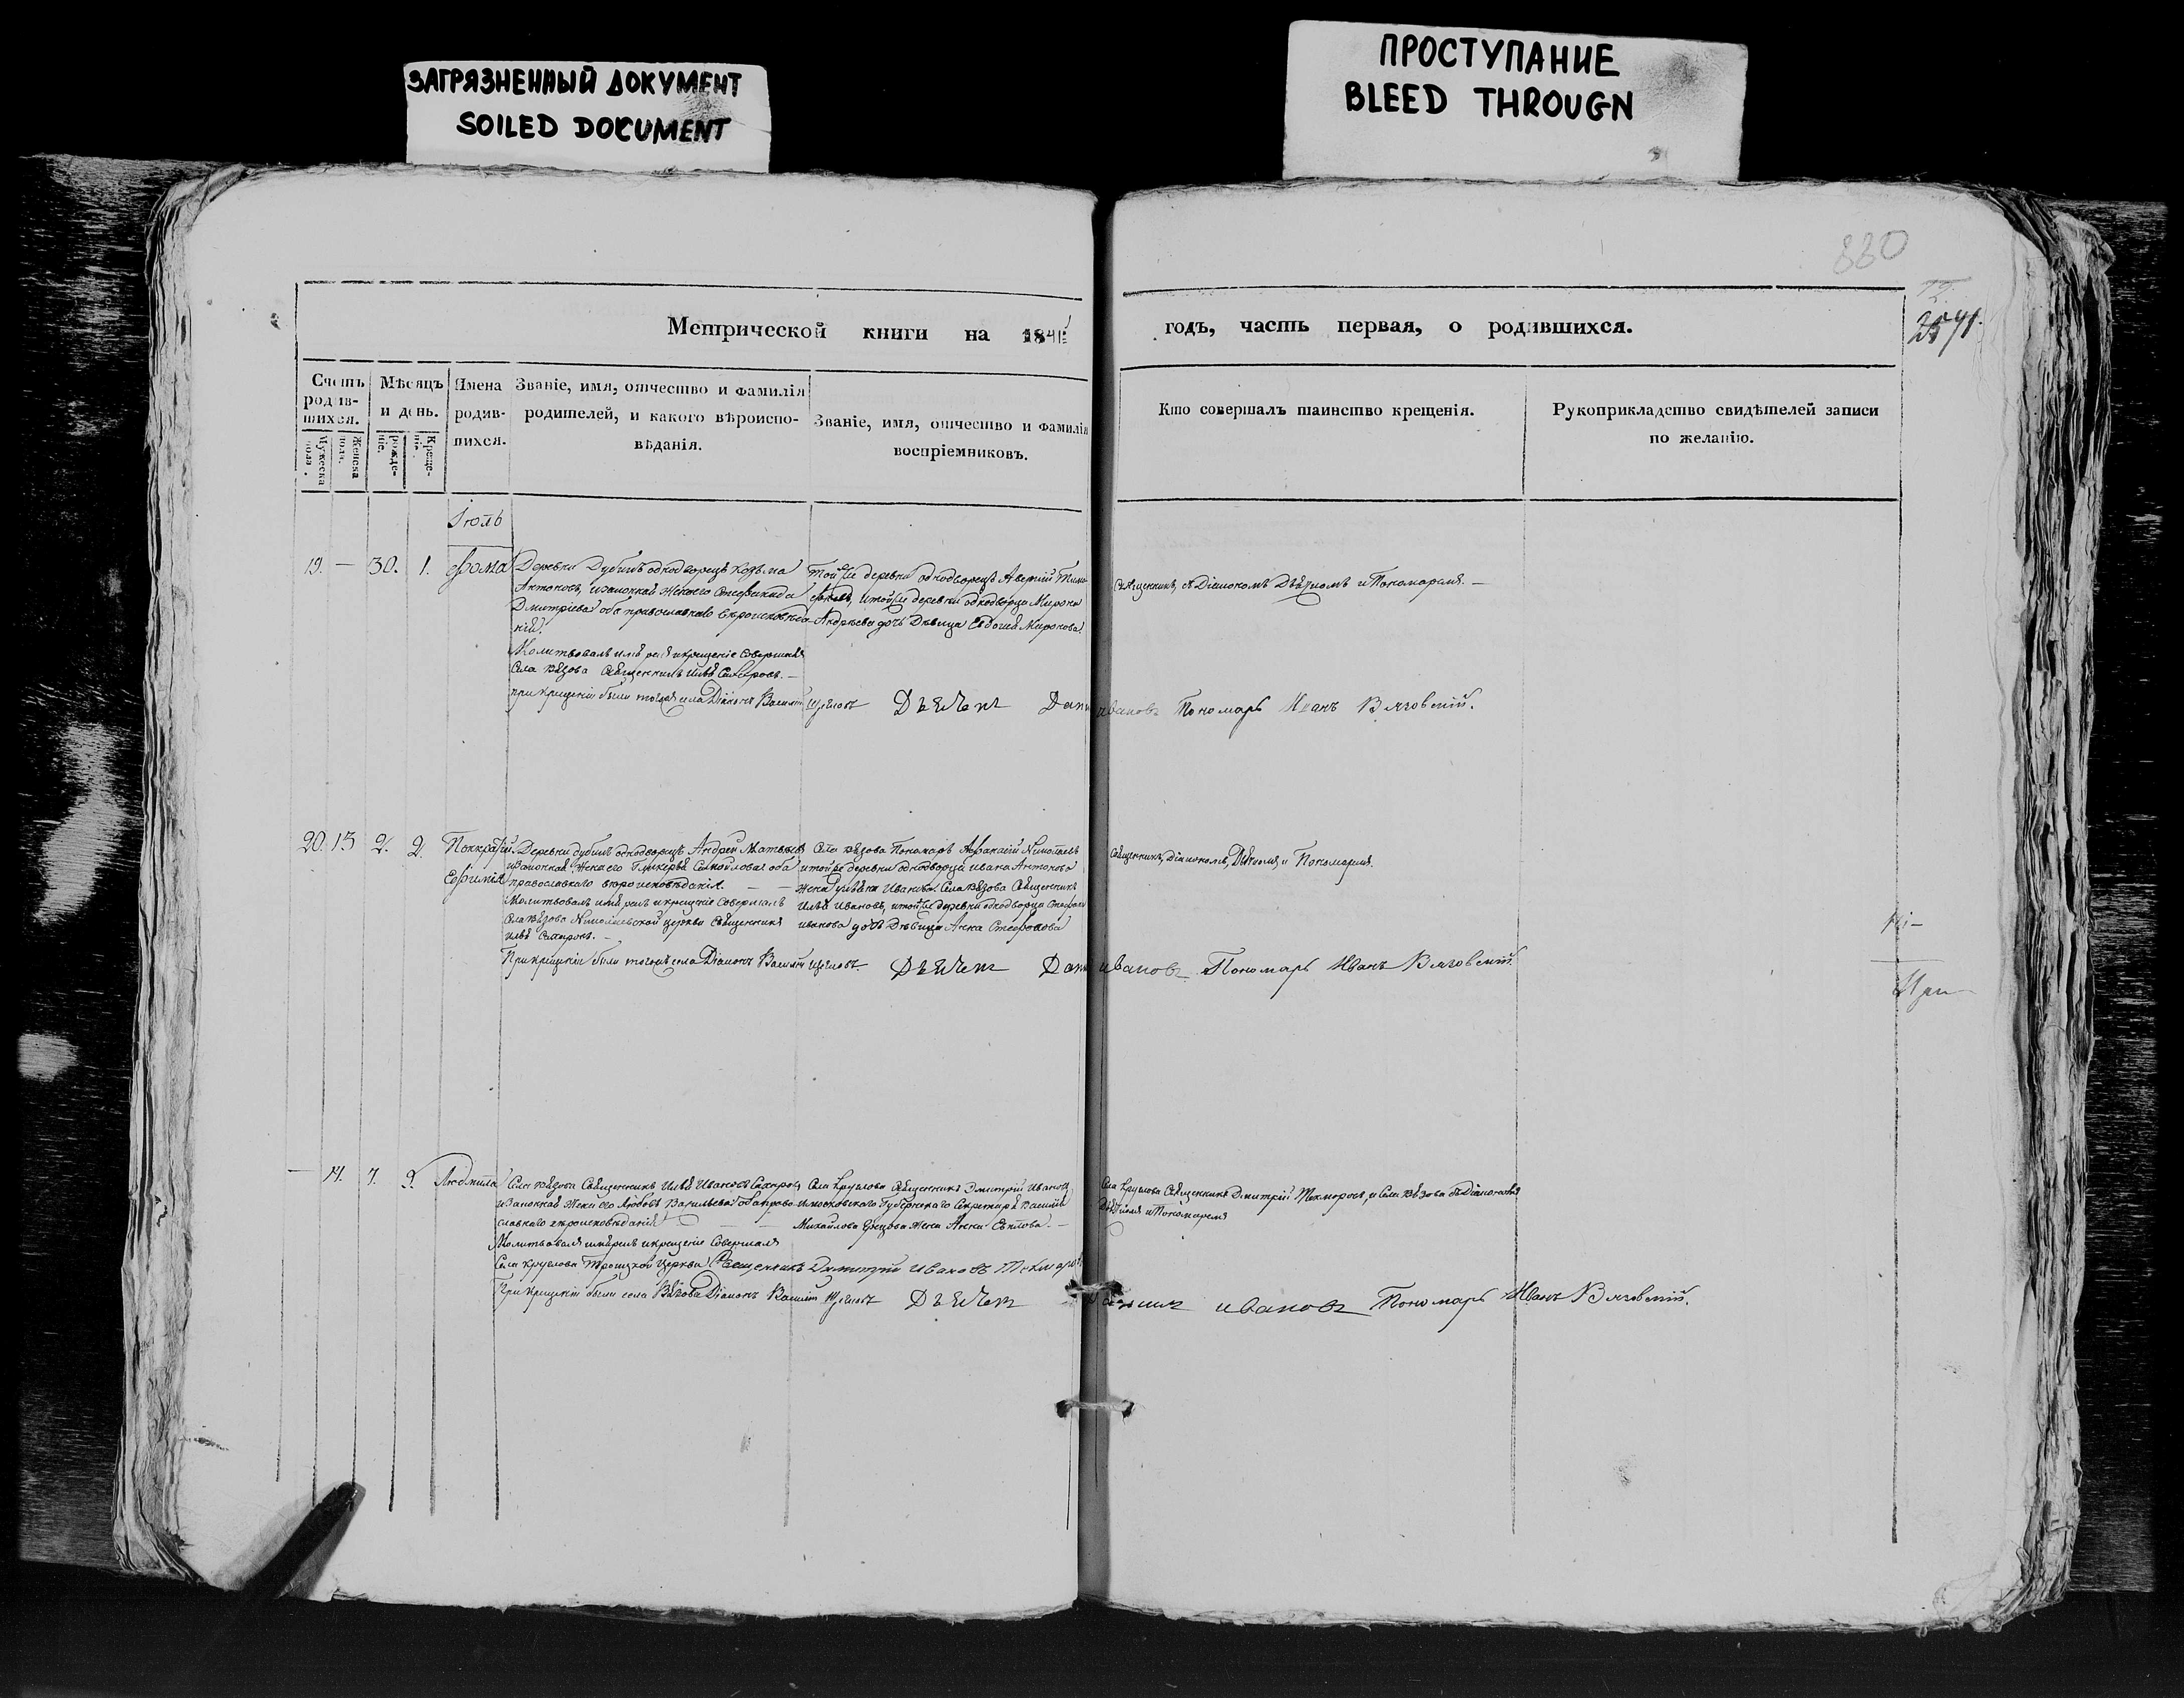 ЗАГРЯЗНЕННЫЙ ДОКУМЕНТ
SOILED DOCUMENT
ПРОСТУПАНИЕ
BLEED THROUGN
880
Метрической книги на 1841й
годъ, часть первая, о родившихся.
Счетъ родив-шихся.
Мужеска пола.
Женска пола.
Мѣсяцъ и день.
рожде-нiе.
Креще-нiе.
Имена родив-шихся.
Званiе, имя, отчество и фамилiя
родителей, и какого вѣроиспо-
вѣданiя.
Званiе, имя, отчество и фамилiя
воспрiемниковъ.
Кто совершалъ таинство крещенiя.
Рукоприкладство свидѣтелей записи
по желанiю.
Iюль
19. — 30. 1. Фома
Деревни Дубищъ однодворецъ Козьма
Антоновъ, изаконная Жена его Стефанида
Дмитрiева оба православнаго вѣроисповѣда-
нiй.
Молитвовалъ имя рекъ и крещенiе Совершалъ
Села Вѣзова Священникъ Илья Сахаровъ. —
при крещенiи были тогожъ села Дiаконъ Василiй
Тойже деревни однодворецъ
и тойже деревни однодворца Мирона
Андрѣева дочь Дѣвица Евдокiя Миронова.
Священникъ, съ Дiакономъ Дьячкомъ и Пономаремъ. —
Дьячекъ Данi
ивановъ Пономарь Иванъ Вязовскiй.
20. 13 2. 2. Панкратiй.
Евфимiя
Деревни Дубищъ однодворецъ Андрей Матвѣевъ
изаконная Жена его Гликерiя Самойлова оба
православнаго вѣроисповѣданiя. — —
Молитвовалъ имя рекъ и крещенiе Совершалъ
Села Вѣзова Николаевской церкви Священникъ
илья Сахаровъ. —
При крещенiи были тогожъ села Дiаконъ Василiй
Села Вѣзова Пономарь Афанасiй Николаевъ
и тойже деревни однодворца ивана Антонова
Жена Ульяна Иванова. Села Вѣзова Священникъ
Илья Ивановъ, и тойже деревни однодворца Стефана
иванова дочь Дѣвица Анна Стефанова
Священникъ, Дiакономъ, Дьячкомъ и Пономаремъ.
Дьячекъ Данi
ивановъ Пономарь Иванъ Вязовскiй.
— 14. 7. 9. Людмила
Села Вѣзова Священникъ Илья Ивановъ Сахаровъ
изаконная Жена его Любовь Васильева оба право-
славнаго вѣроисповѣданiя — —
Молитвовалъ имя рекъ и крещенiе Совершалъ
Села Круглова Троицкой Церкви Священникъ Димитрiй Ивановъ
При крещенiи были села Вѣзова Дiаконъ Василiй
Села Круглова Священникъ Дмитрiй Ивановъ
и московскаго Губернскаго Секретаря Василiя
Михайлова жена Анна —
Села Круглова Священникъ Дмитрiй и Села Вѣзова съ Дiакономъ
Дьячкомъ и Пономаремъ
Дьячекъ
Данiилъ ивановъ Пономарь Иванъ Вязовскiй.